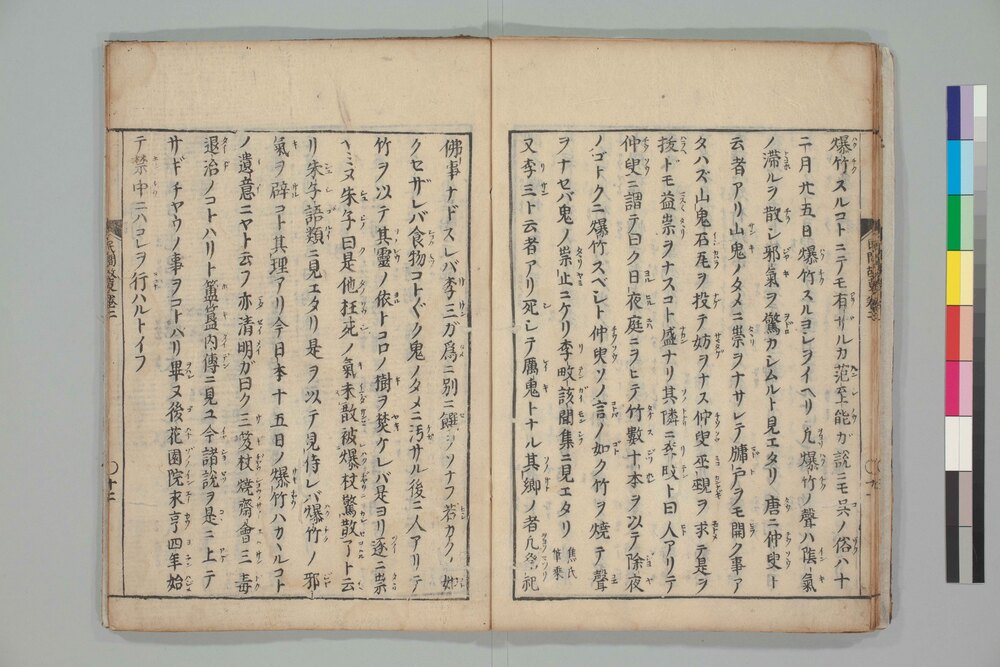 爆竹スルコトニテモ有ザルカ范至能ガ説ニモ呉ノ俗ハ十
二月廿五日爆竹スルヨシヲイヘリ凡爆竹ノ聲ハ陰氣
ノ滞ルヲ散シ邪氣ヲ驚カシムルト見エタリ唐ニ仲叟ト
云者アリ山鬼ノタメニ祟ヲナサレテ牗戸ヲモ開ク事ア
タハズ山鬼石瓦ヲ投テ妨ヲナス仲叟巫覡ヲ求テ是ヲ
拔トモ益祟ヲナスコト盛ナリ其隣ニ李畋ト曰人アリテ
仲叟ニ謂テ曰ク日夜庭ニヲヒテ竹數十本ヲ以テ除夜
ノゴトクニ爆竹スベシト仲叟ソノ言ノ如ク竹ヲ燒テ聲
ヲナセバ鬼ノ祟止ニケリ李畋該聞集ニ見エタリ
焦氏
筆乘
又李三ト云者アリ死シテ厲鬼トナル其郷ノ者凡祭祀
佛事ナドスレバ李三ガ爲ニ別ニ饌ヲソナフ若カクノ如
クセザレバ食物コトゞク鬼ノタメニ汚サル後ニ人アリテ
竹ヲ以テ其靈ノ依トコロノ樹ヲ焚ケレバ是ヨリ遂ニ祟
ヘミヌ朱子曰是他枉死ノ氣未散被爆杖驚散了ト云
リ朱子語類ニ見エタリ是ヲ以テ見侍レバ爆竹ノ邪
氣ヲ辟コト其理アリ今日本十五日ノ爆竹ハカヽルコト
ノ遺意ニヤト云フ亦清明ガ曰ク三笈杖燒齋會三毒
退治ノコトハリト簠簋内傳ニ見ユ今諸説ヲ是ニ上テ
サギチヤウノ事ヲコトハリ畢ヌ後花園院永亨四年始
テ禁中ニハコレヲ行ハルトイフ
十二